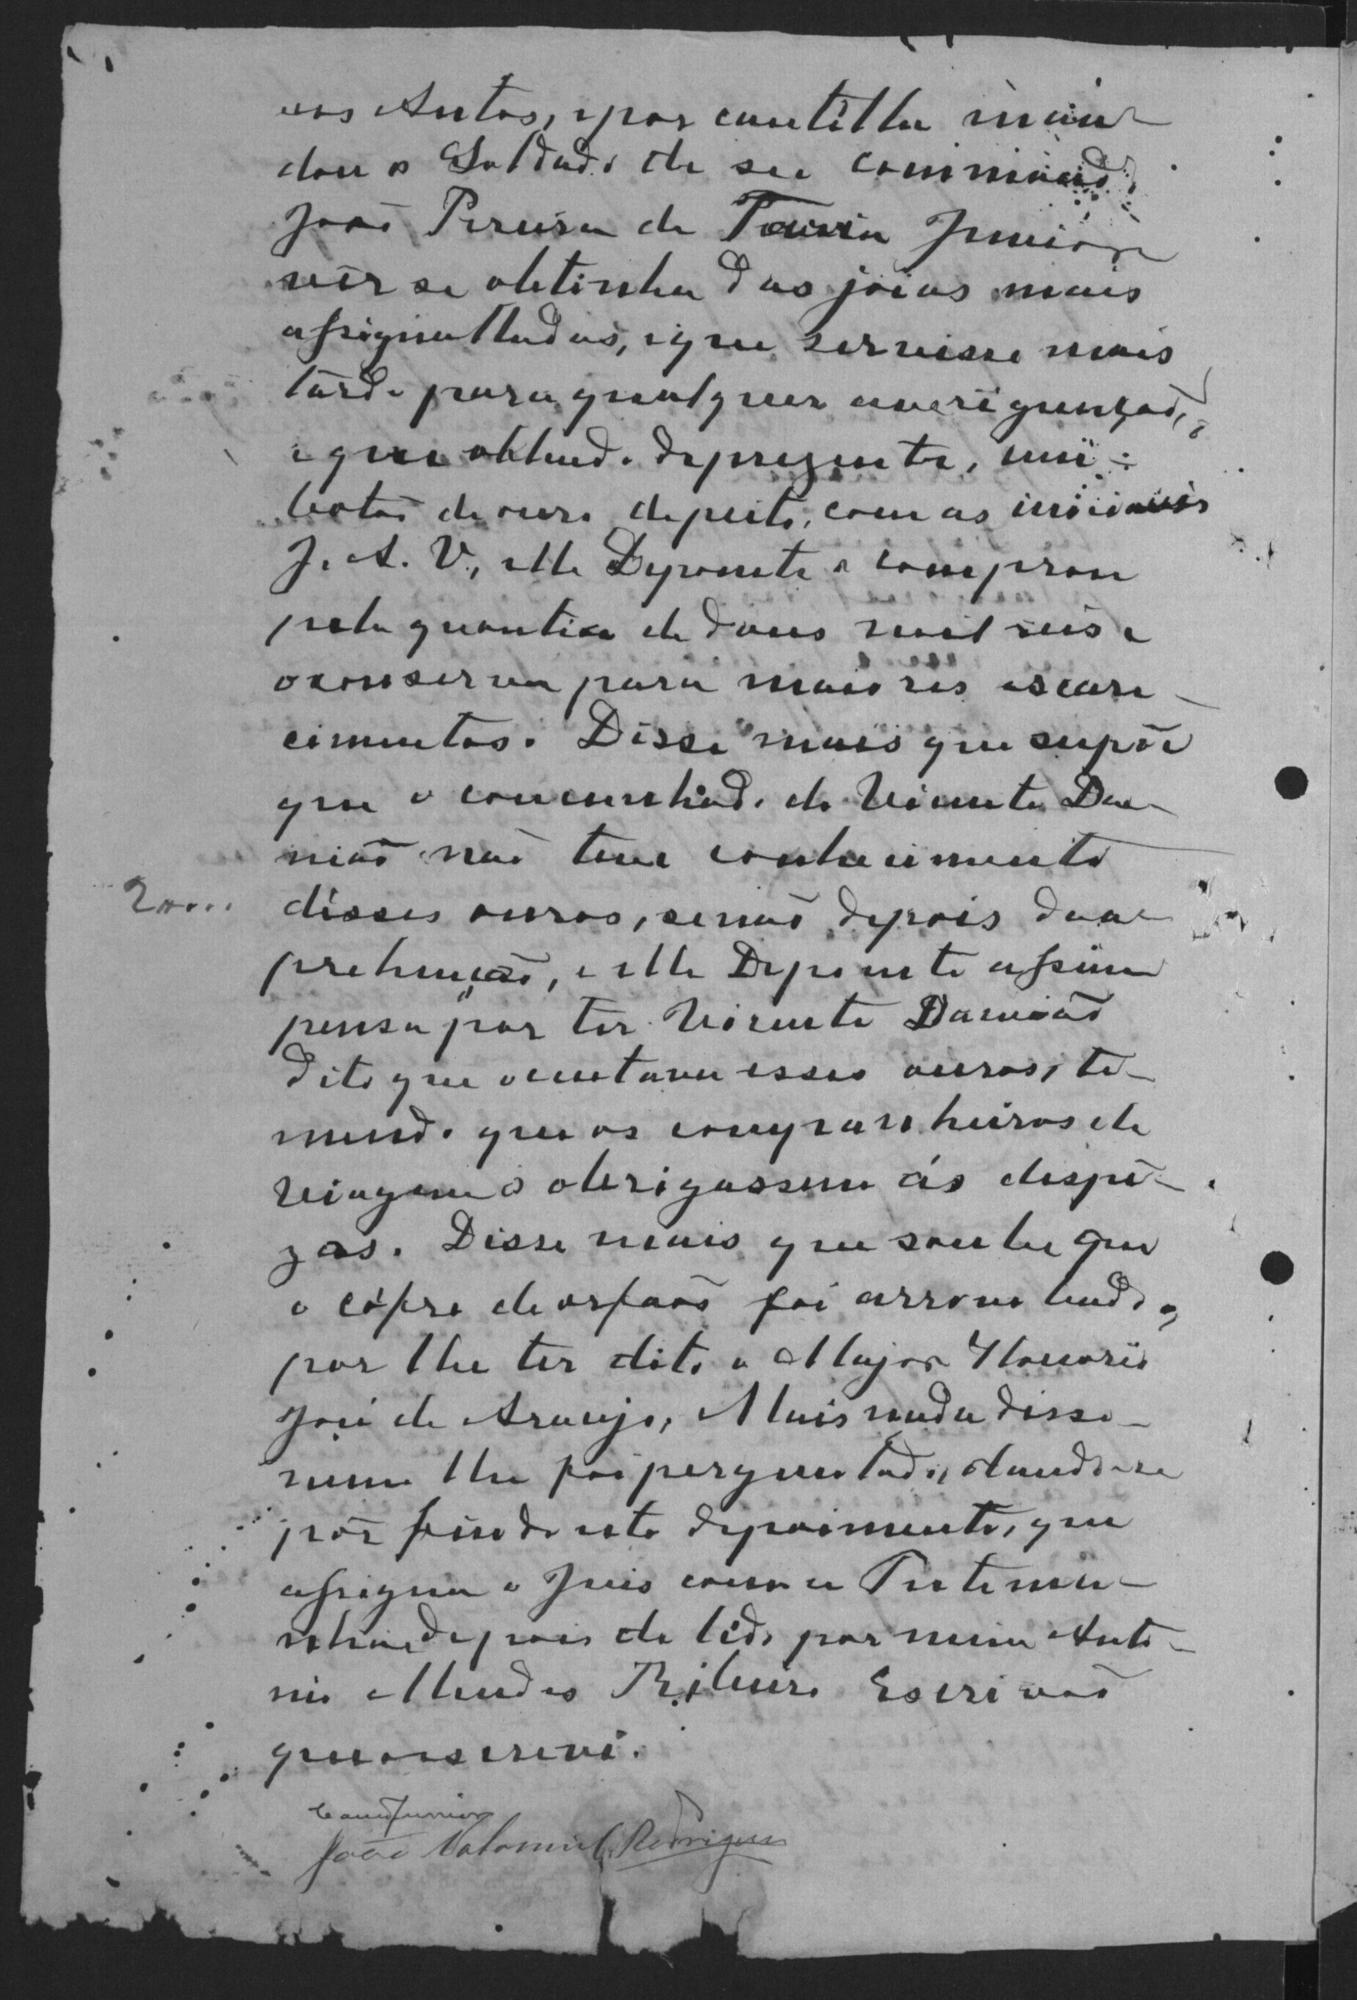 nos Autos, e por cautella man-
dou o Soldado de seu commando,
João Pereira de Paiva Junior
vêr se obtinha das joias mais
assignalladas, e que servisse mais
tarde para qualquer averiguação,
e que obtendo do prezente, um
botão de ouro de peito, com as iniciaes
J. A. V., elle Depoente o comprou
pela quantia de dous mil reis e
o conserva para maiores escare-
cimentos. Disse mais que supõe
que o concunhado de Vicente Da-
mião não teve conhecimento
disses ouros, senão depois da a-
prehenção, e elle Depoente assim
pensa por ter Vicente Damião
dito que ocultava esses ouros, te-
mendo que os companheiros de
viagem o obrigassem ás dispe-
zas. Disse mais que soube que
o cófre de orfãos foi arrombado,
por lhe ter dito o Major Honorio
José de Araujo, Mais nada disse
nem lhe foi perguntado, dando-se
por findo este depoimento, que
assigna o Juis com a Testemu-
nha depois de lido por mim Anto-
nio Mendes Ribeiro Escrivão
que o escrevi.
Junior
João Rodrigues